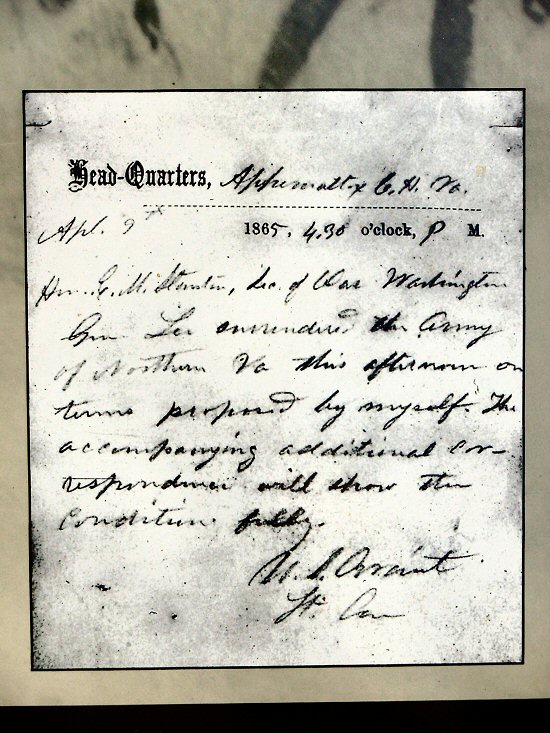 Head-Quarters, Appomattox C. H. Va.
Apl. 9th 1865, 4.30 o'clock, P M.
Hon. E. M. Stanton, Sec. of War Washington
Gen Lee surrendered the Army
of Northern Va this afternoon on
terms proposed by myself. The
accompanying additional cor-
respondence will show the
conditions fully.
U. S. Grant
Lt. Gen